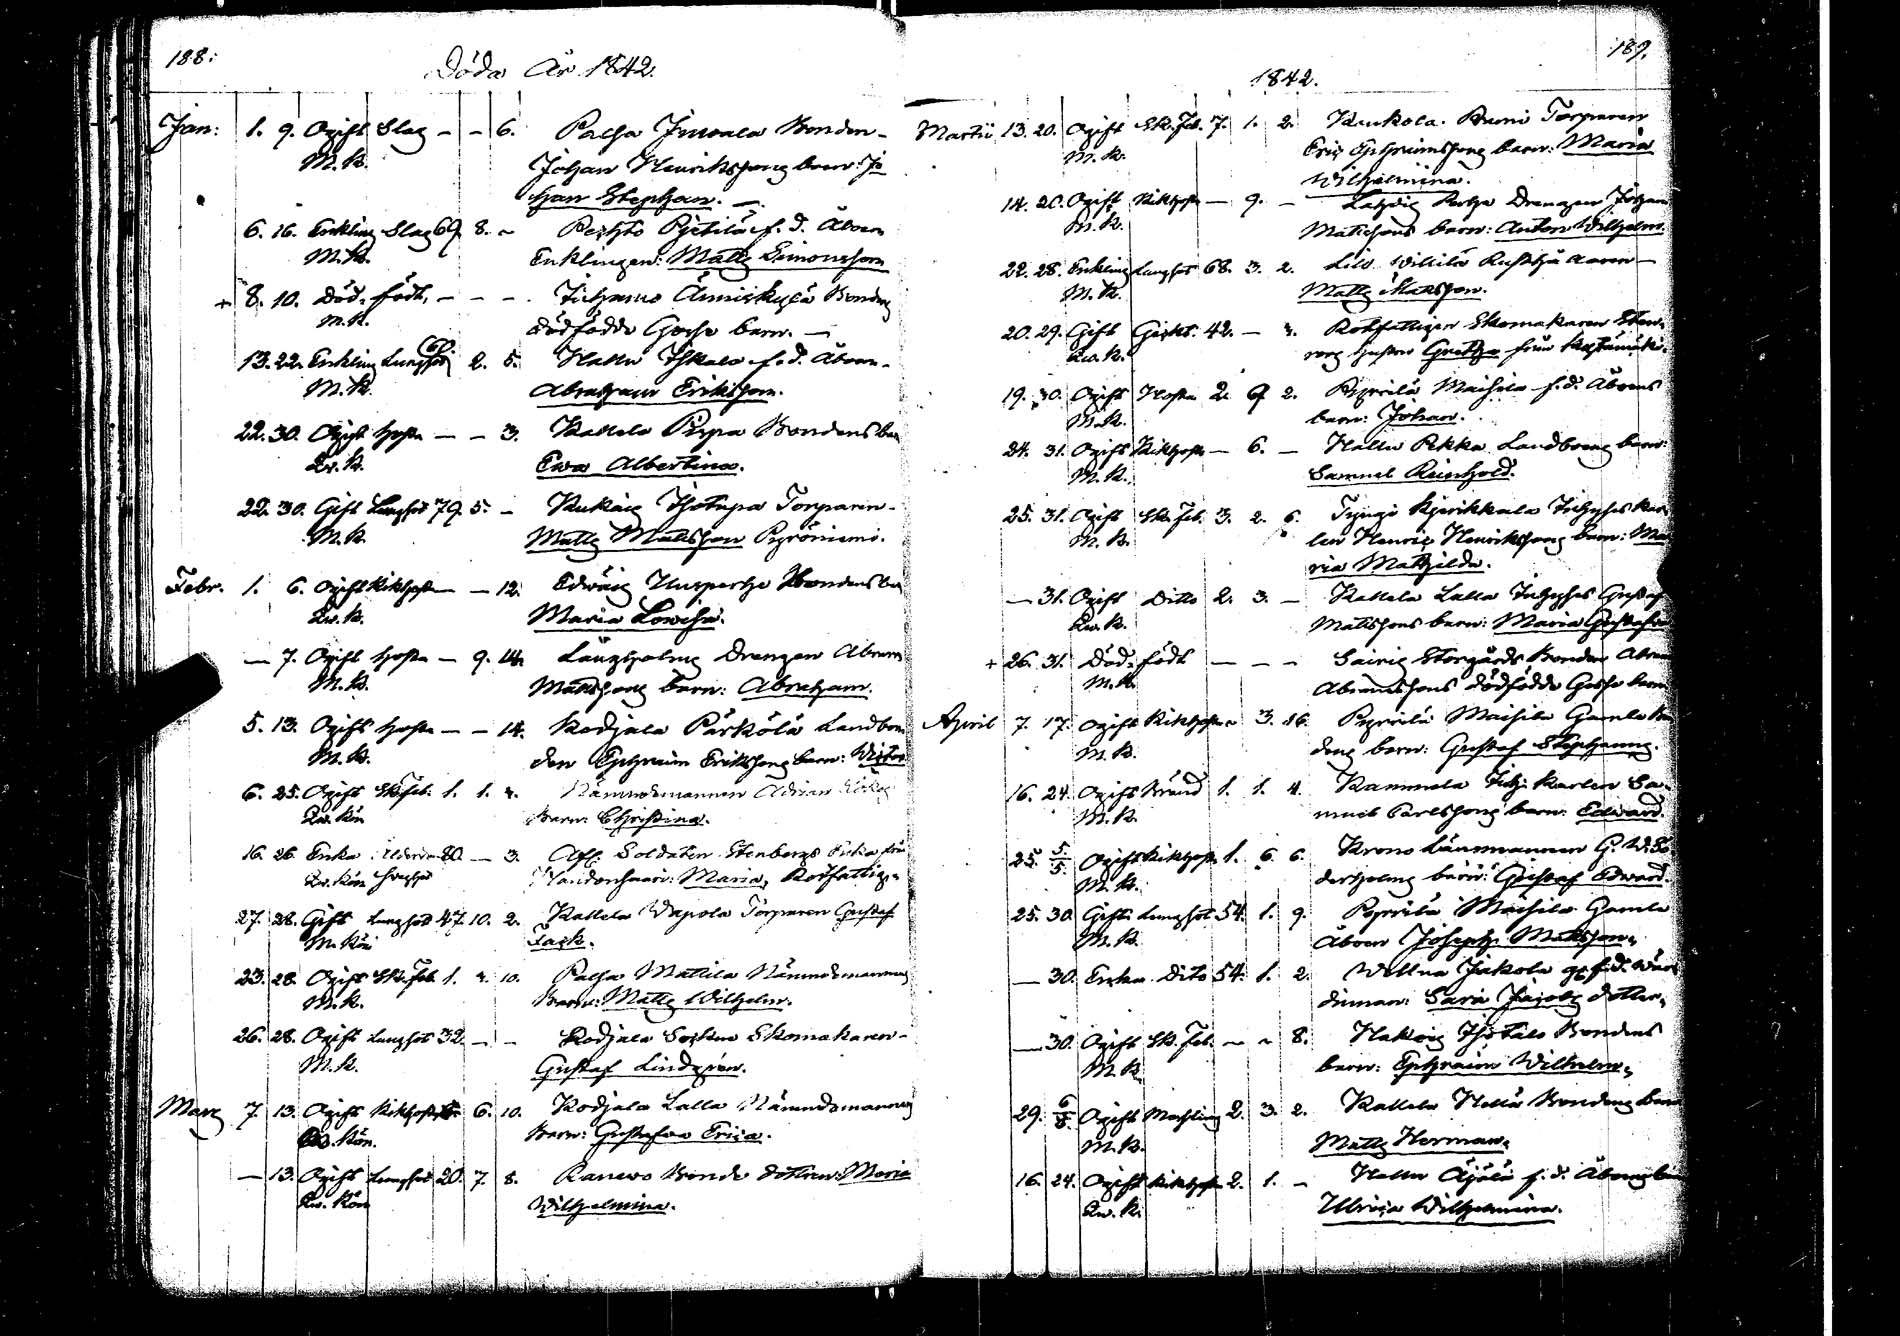 188.
Döda År 1842.
Jan: 1. 9. Ogift Slag - - 6. Palsa Jmvala Bonden-
M.K. Johan Henrikssons barn: Jo-
han Stephan. -
6. 16. Enkling Slag 69. 8. - Perhto Pijtilä f. d. Åboen
M.K. Enklingen: Matts Simonsson
+ 8. 10. Död-född, - - - Bondens
M.K. dödfödde Gosse barn. -
13. 22. Enkling Lungsot 60. 2. 5. Hallu f. d. Åboen-
M.K. Abraham Eriksson.
22. 30. Ogift Hosta - - 3. Kallela Pirpa Bondens barn
Qv.K. Ewa Albertina.
22. 30. Gift Lungsot 79. 5. - Kukoig Torparen-
M.K. Matts Mattsson Pyröniemi.
Febr. 1. 6. Ogift Kikhosta - - 12. Bondens barn
Qv.K. Maria Lovisa.
- 7. Ogift Hosta - 9. 14. Längholms Drengen Abram
M.K. Mattssons barn: Abraham.
5. 13. Ogift Hosta - - 14. Kodjala Pärkölä Landbon-
M.K. den Ephraim Erikssons barn: Victor
6. 25. Ogift Sk.feb. 1. 1. 4. Nämndemannen Adrian
Qv.Kön Barn: Christina.
16. 26. Enka 80. - 3. Afl. Soldaten Stenbergs Enka från
Qv.Kön Maria, Rotfattig,
27. 28. Gift Lungsot 47. 10. 2. Kallela Wapola Torparen Gustaf
M.Kön Jack.
23. 28. Ogift Sk.Feb. 1. 4. 10. Palsa Mattila Nämndemannens
M.K. Barn: Matts Wilhelm.
26. 28. Ogift Lungsot 32. - - Kodjala Skomakaren-
M.K. Gustaf Lindgrén.
Mars 7. 13. Ogift Kikhosta 6. 10. Kodjala Lalla Nämndemannens
Qv.Kön. Barn: Gustafva Erica.
- 13. Ogift Lungsot 20. 7. 8. Bonde dottren: Maria
Qv.Kön Wilhelmina.
189.
1842.
Martii 13. 20. Ogift Sk.Feb. 7. 1. 2. Kaukola Torparen
M.K. Eric Ephraimssons barn: Maria
Wilhelmina.
14. 20. Ogift Kikhosta - 9. - Drengen Johan
M.K. Mattssons barn: Anton Wilhelm.
22. 28. Enkling Lungsot 68. 3. 2. Willilä
M.K. Matts Mattsson.
20. 29. Gift Gickt. 42. - 3. Rotfattigen Skomakaren Sten-
Qv.K. hustru Gretha från
19. 30. Ogift Hosta 2. 9 2. Pyrrilä Maisila f. d. Åboens
M.K. barn: Johan.
24. 31. Ogift Kikhosta - 6. - Hallu Pekka Landboens barn:
M.K. Samuel Reinhold.
25. 31. Ogift Sk.Feb. 3. 2. 6. Kyrikkala Inhyses kar-
M.K. len Henric Henrikssons barn: Ma-
ria Mathilda.
- 31. Ogift Ditto 2. 3. - Kallela Lalla Inhyses Gustaf
Qv.K. Mattssons barn: Maria Gustafva
+ 26. 31. Död-född - - - Sairis Storgårds Bonden Abram
M.K. Abramssons dödfödde Gosse barn
April 7. 17. Ogift Kikhosta - 3. 16. Pyrrilä Maisila Gamle Bon-
M.K. dens barn: Gustaf Stephanus.
16. 24. Ogift Bränd 1. 1. 4. Kammela Inh. Karlen Sa-
M.K. muel Carlssons barn: Edward.
25. 5/5. Ogift Kikhosta 1. 6. 6. Krono Länsmannen G. W. Sö-
M.K. derholms barn: Gustaf Edward.
25. 30. Gift Lungsot 54. 1. 9. Pyrrilä Maisila Gamle
M.K. Åboen Joseph Mattsson,
- 30. Enka Dito 54. 1. 2. Wellua Jakola f. d. Wär-
dinnan: Sara Jacobs dotter,
- 30. Ogift Sk.Feb. - - 8. Hakoig Bondens
M.K. barn: Ephraim Wilhelm,
29. 6/8. Ogift Messling 2. 3. 2. Kallela Hellä Bondens barn
M.K. Matts Herman,
16. 24. Ogift Kikhosta 2. 1. - Hallu Äjälä f. d. Åboens barn
Qv.K. Ulrica Wilhelmina.